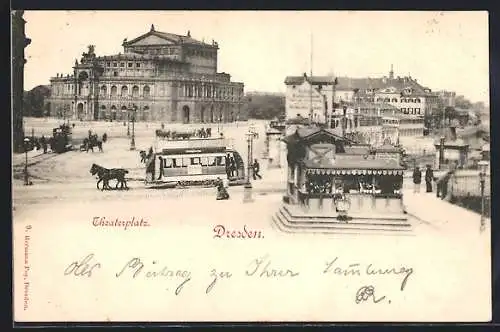 Theaterplatz.
Dresden.
Als Beitrag zu Ihrer Sammlung
9. Hermann Poy, Dresden.